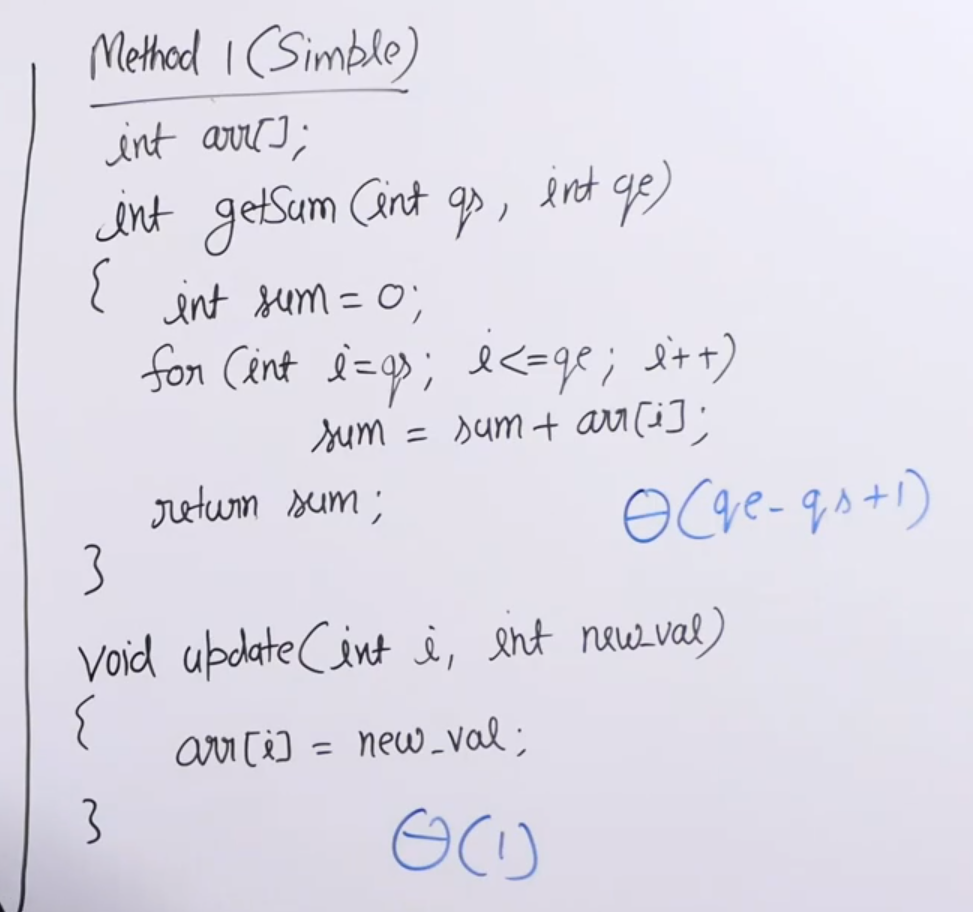 Method 1 (Simple)
int arr[];
int getSum (int qs, int qe)
{ int sum = 0;
for (int i=qs; i<=qe; i++)
sum = sum + arr[i];
return sum;
Θ(qe-qs+1)
}
void update(int i, int new_val)
{
arr[i] = new_val;
}
Θ(1)